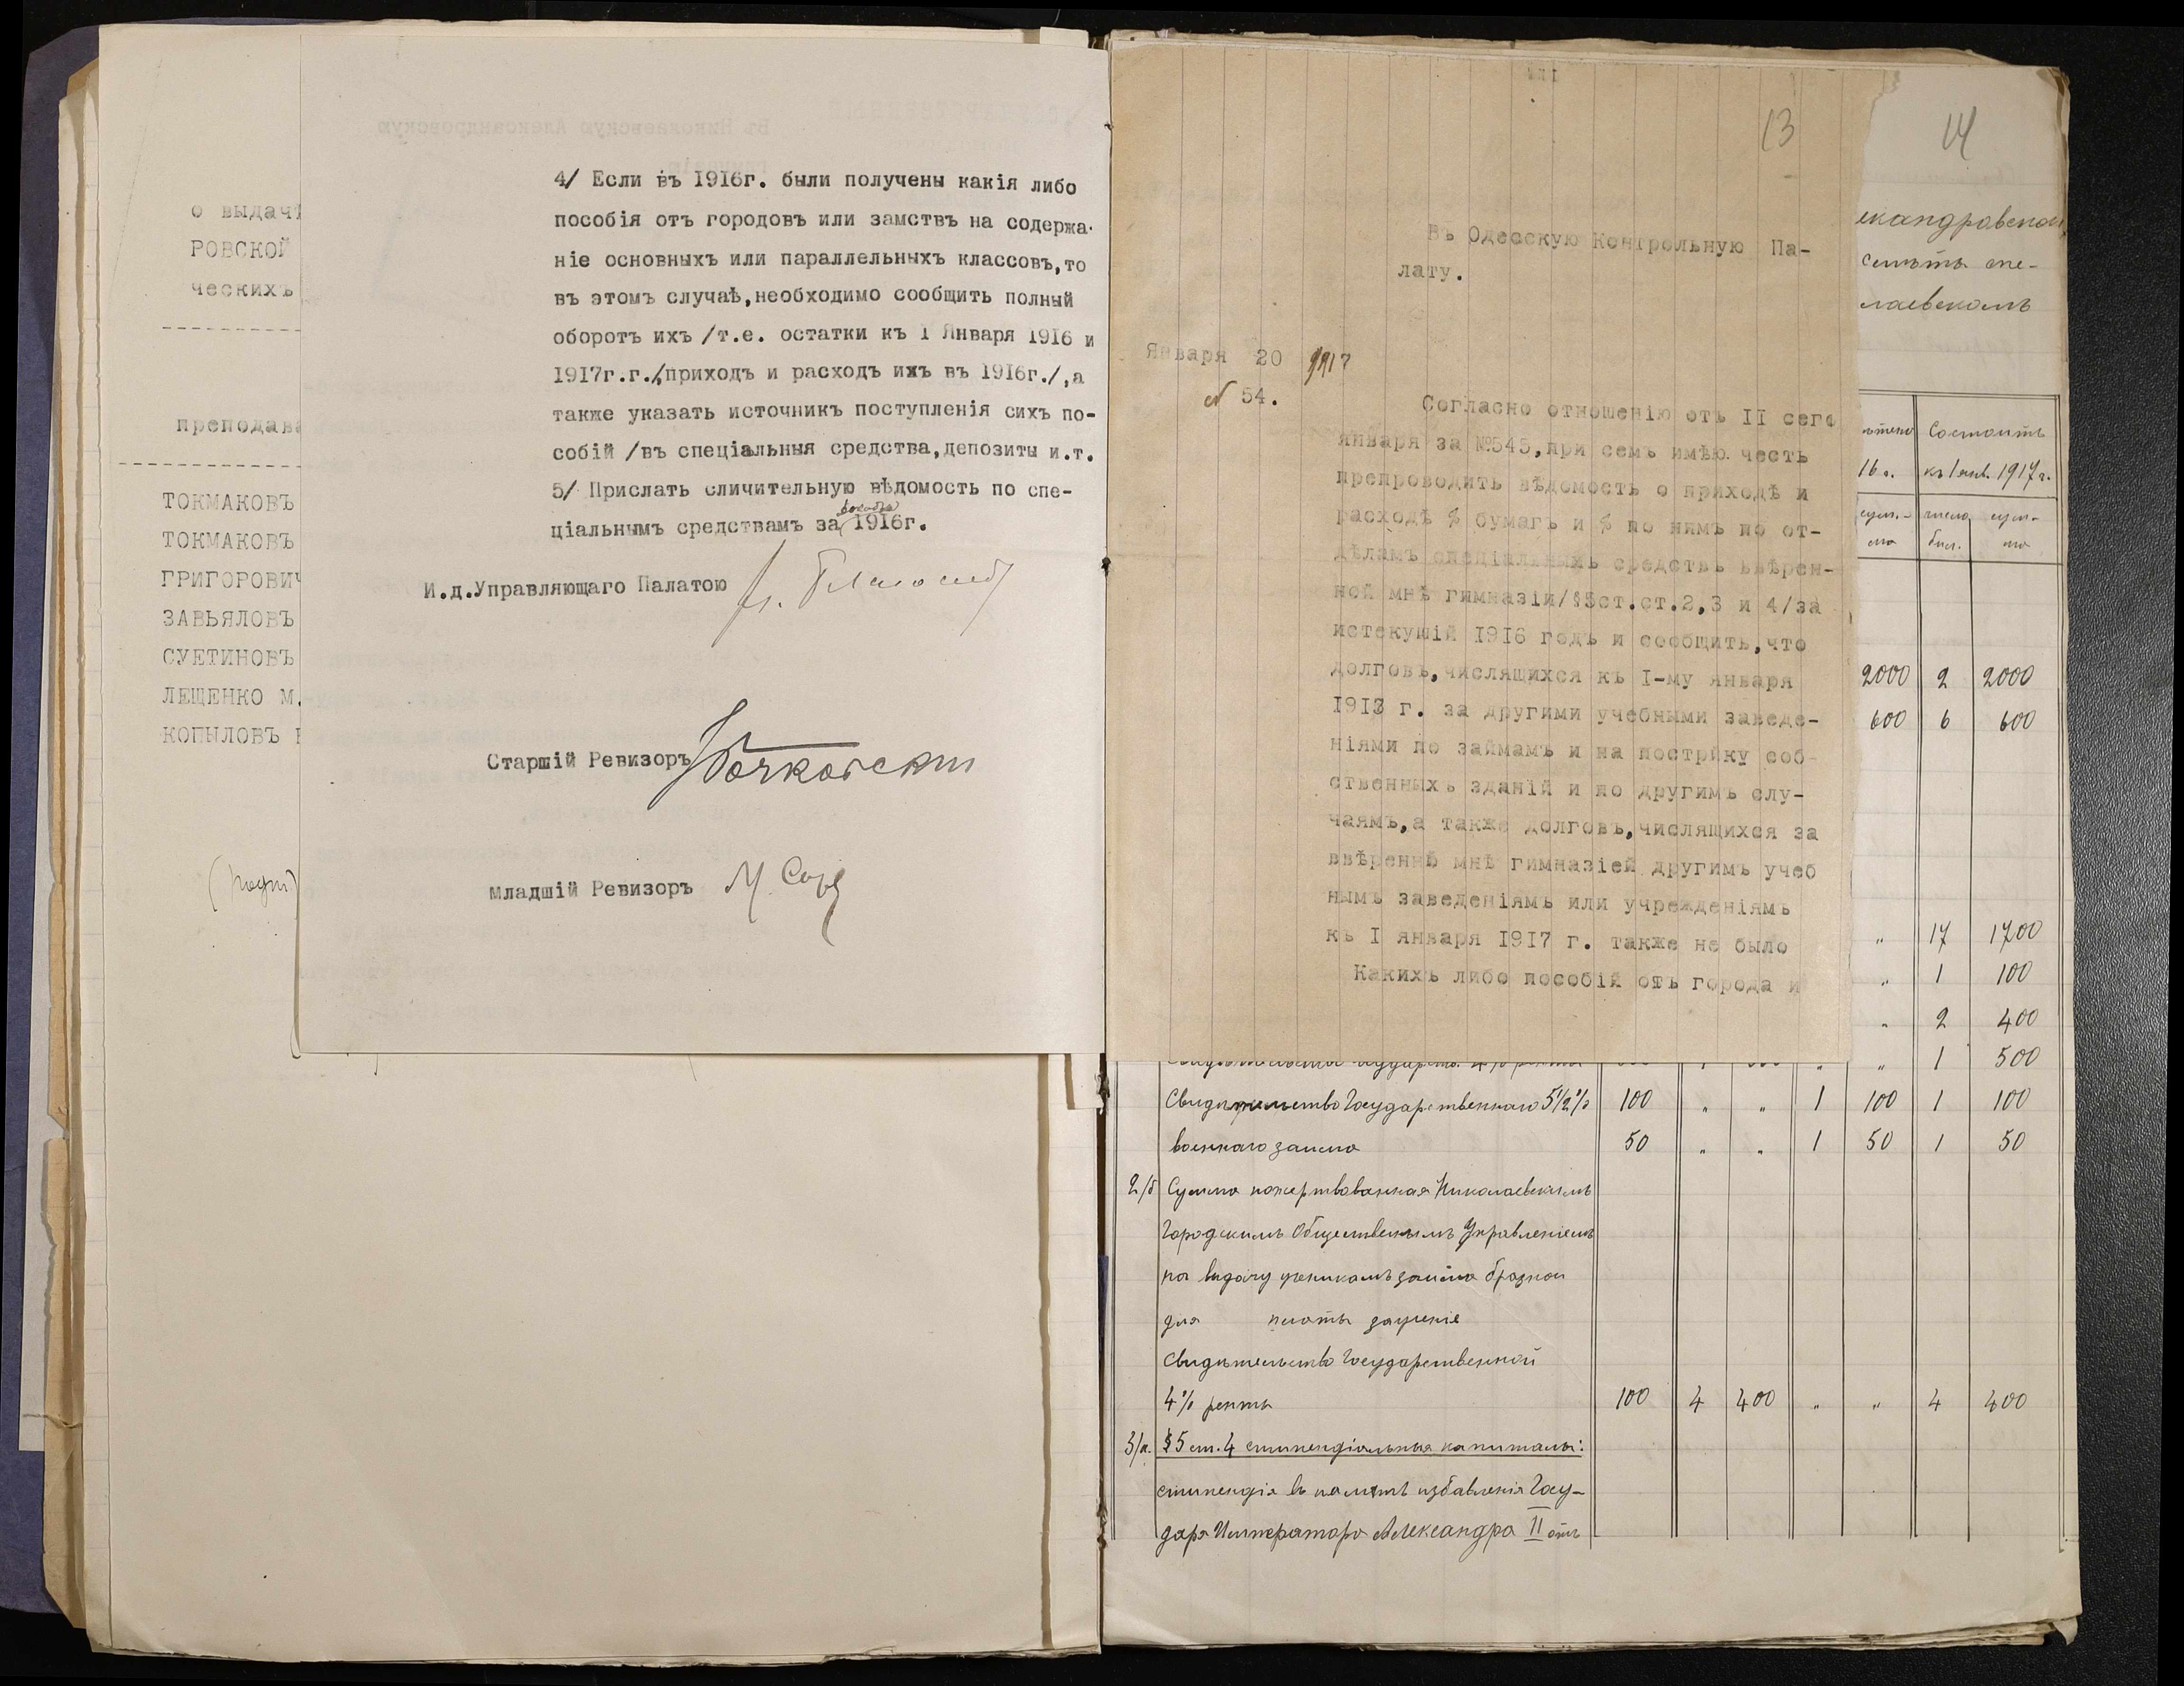 о выдач
РОВСКОЙ
ческихъ
препода
ТОКМАКОВЪ
ТОКМАКОВЪ
ГРИГОРОВИЧ
ЗАВЬЯЛОВЪ
СУЕТИНОВЪ
ЛЕЩЕНКО М.
КОПЫЛОВЪ
4/ Если въ 1916г. были получены какія либо
пособія отъ городовъ или замствъ на содержа-
ніе основныхъ или параллельныхъ классовъ,то
въ этомъ случаѣ,необходимо сообщить полный
оборотъ ихъ /т.е. остатки къ 1 Января 1916 и
1917г.г./,приходъ и расходъ ихъ въ 1916г./,а
также указать источникъ поступленія сихъ по-
собій /въ спеціальныя средства,депозиты и.т.
5/ Прислать сличительную вѣдомость по спе-
ціальнымъ средствамъ за 1916г.
И.д.Управляющаго Палатою
Старшій Ревизоръ
младшій Ревизоръ
13
Въ Одесскую Контрольную Па-
лату.
Января 20 1917
№ 54.
Согласно отношенію отъ II сего
января за №545,при семъ имѣю честь
препроводить вѣдомость о приходѣ и
расходѣ % бумагъ и % по нимъ по от-
дѣламъ спеціальныхъ средствъ ввѣрен-
ной мнѣ гимназіи/§5ст.ст.2,3 и 4/за
истекушій 1916 годъ и сообщить,что
долговъ,числящихся къ I-му января
1913 г. за другими учебными заведе-
ніями по займамъ и на пострйку соб-
ственныхъ зданій и по другимъ слу-
чаямъ,а также долговъ,числящихся за
ввѣренной мнѣ гимназіей другимъ учеб
нымъ заведеніямъ или учрежденіямъ
къ I января 1917 г. также не было
Какихъ либо пособій отъ города и
14
ександровской
лаевскомъ
Состоитъ
16 г. къ 1 янв. 1917 г.
сум- число сум-
ма бил. ма
2000 2 2000
600 6 600
" 17 1700
" 1 100
" 2 400
" 1 500
Свидѣтельство Государственнаго 5½% 100 " " 1 100 1 100
военнаго займа 50 " " 1 50 1 50
2/б Сумма пожертвованная Николаевскимъ
Городскимъ Общественнымъ Управленіемъ
на выдачу ученикамъ заимообразно
для платы заученіе
Свидѣтельство Государственной
4% ренты 100 4 400 " " 4 400
3/а. § 5 ст. 4 стипендіальные капиталы:
стипендія въ память избавленія Госу-
даря Императора Александра II отъ